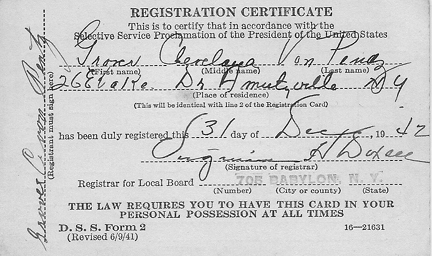 REGISTRATION CERTIFICATE
This is to certify that in accordance with the
Selective Service Proclamation of the President of the United States
Grover Cleveland Von Pentz
(First name) (Middle name) (Last name)
26 Lake Dr Amityville N Y
(Place of residence)
(This will be identical with line 2 of the Registration Card)
has been duly registered this 31 day of Dec 19 42
(Signature of registrar)
Registrar for Local Board 705 BABYLON, N. Y.
(Number) (City or county) (State)
THE LAW REQUIRES YOU TO HAVE THIS CARD IN YOUR
PERSONAL POSSESSION AT ALL TIMES
D. S. S. Form 2 16—21631
(Revised 6/9/41)
Grover C Von Pentz
(Registrant must sign here)